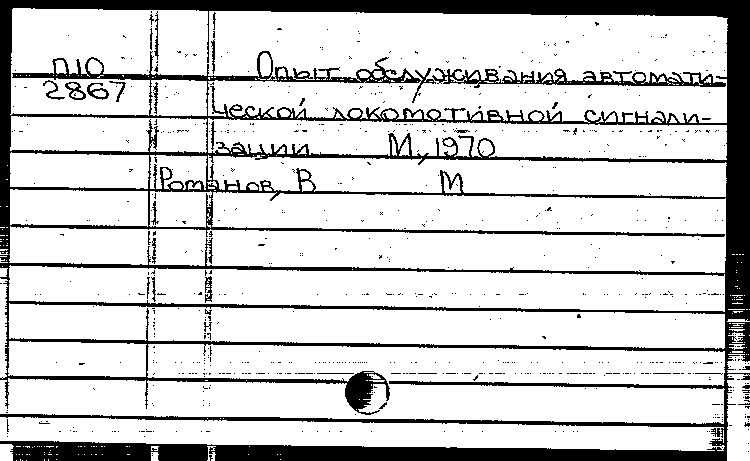 П10 Опыт обслуживания автомати-
2867 ческой локомотивной сигнали-
зации М., 1970
Романов, В М